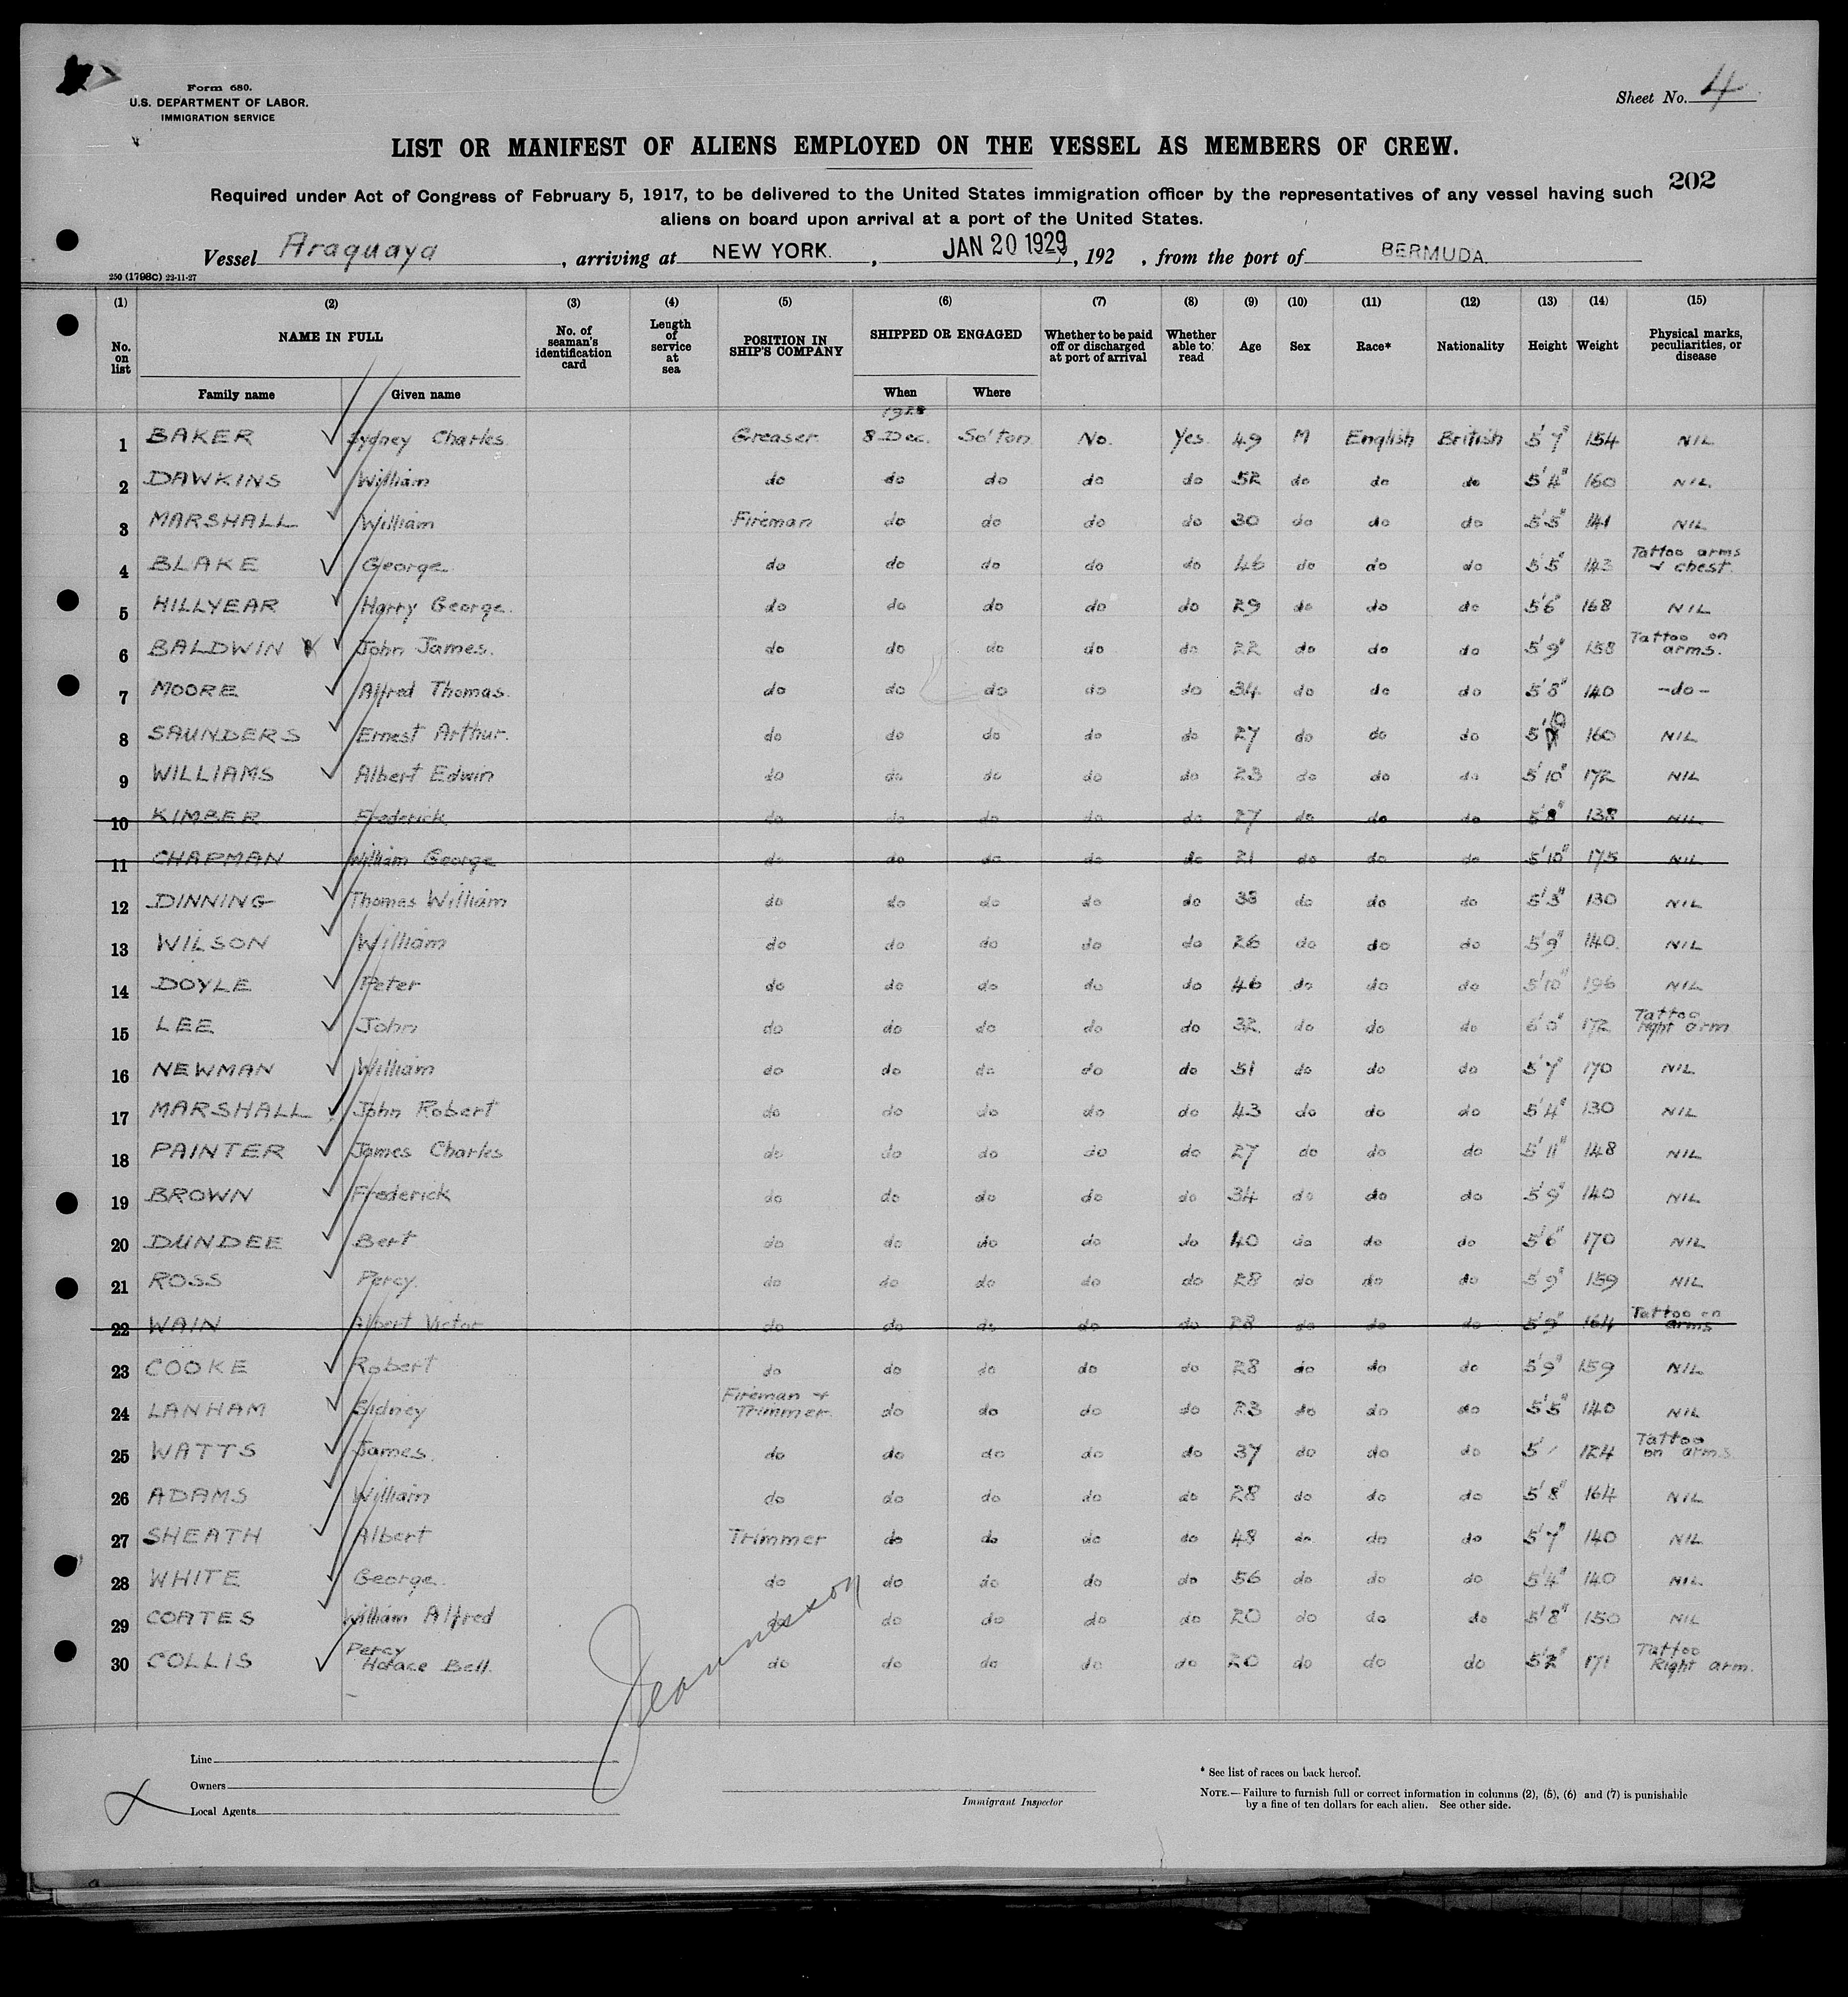 Form 680.
U.S. DEPARTMENT OF LABOR.
IMMIGRATION SERVICE
Sheet No. 4
LIST OR MANIFEST OF ALIENS EMPLOYED ON THE VESSEL AS MEMBERS OF CREW.
202
Required under Act of Congress of February 5, 1917, to be delivered to the United States immigration officer by the representatives of any vessel having such
aliens on board upon arrival at a port of the United States.
Vessel Araguaya, arriving at NEW YORK., JAN 20 1929, 192 , from the port of BERMUDA.
250 (1798C) 22-11-27
(1) (2) (3) (4) (5) (6) (7) (8) (9) (10) (11) (12) (13) (14) (15)
No. on list NAME IN FULL No. of seaman's identification card Length of service at sea POSITION IN SHIP'S COMPANY SHIPPED OR ENGAGED Whether to be paid off or discharged at port of arrival Whether able to read Age Sex Race* Nationality Height Weight Physical marks, peculiarities, or disease
Family name Given name When Where
1928
1 BAKER Sydney Charles Greaser 8 Dec. So'ton No. Yes. 49 M English British 5'7" 154 NIL
2 DAWKINS William do do do do do 52 do do do 5'4" 160 NIL.
3 MARSHALL William Fireman do do do do 30 do do do 5'5" 141 NIL
4 BLAKE George do do do do do 46 do do do 5'5" 143 Tattoo arms + chest.
5 HILLYEAR Harry George. do do do do do 29 do do do 5'6" 168 NIL
6 BALDWIN John James. do do do do do 22 do do do 5'9" 158 Tattoo on arms.
7 MOORE Alfred Thomas. do do do do do 34 do do do 5'8" 140 -do-
8 SAUNDERS Ernest Arthur. do do do do do 27 do do do 5'10 160 NIL
9 WILLIAMS Albert Edwin do do do do do 23 do do do 5'10" 172 NIL
10 KIMBER Frederick do do do do do 27 do do do 5'8" 138 NIL
11 CHAPMAN William George do do do do do 21 do do do 5'10" 175 NIL
12 DINNING Thomas William do do do do do 38 do do do 5'3" 130 NIL
13 WILSON William do do do do do 26 do do do 5'9" 140. NIL
14 DOYLE Peter do do do do do 46 do do do 5'10" 196 NIL
15 LEE John do do do do do 32. do do do 6'0" 172 Tattoo right arm
16 NEWMAN William do do do do do 51 do do do 5'7" 170 NIL
17 MARSHALL John Robert do do do do do 43 do do do 5'4" 130 NIL
18 PAINTER James Charles do do do do do 27 do do do 5'11" 148 NIL
19 BROWN Frederick do do do do do 34 do do do 5'9" 140 NIL
20 DUNDEE Bert do do do do do 40 do do do 5'6" 170 NIL
21 ROSS Percy. do do do do do 28 do do do 5'9" 159 NIL
22 WAIN Albert Victor do do do do do 28 do do do 5'9" 164 Tattoo on arms
23 COOKE Robert do do do do do 28 do do do 5'9" 159 NIL
24 LANHAM Sidney Fireman + Trimmer. do do do do 23 do do do 5'5" 140 NIL
25 WATTS James. do do do do do 37 do do do 5' 124 Tattoo on arms.
26 ADAMS William do do do do do 28 do do do 5'8" 164 NIL
27 SHEATH Albert Trimmer do do do do 48 do do do 5'7" 140 NIL
28 WHITE George. do do do do do 56 do do do 5'4" 140 NIL.
29 COATES William Alfred do do do do do 20 do do do 5'8" 150 NIL
30 COLLIS Percy Horace Bell. do do do do do 20 do do do 5'2" 171 Tattoo Right arm.
Line
Owners
Local Agents
Immigrant Inspector
* See list of races on back hereof.
NOTE.—Failure to furnish full or correct information in columns (2), (5), (6) and (7) is punishable
by a fine of ten dollars for each alien. See other side.